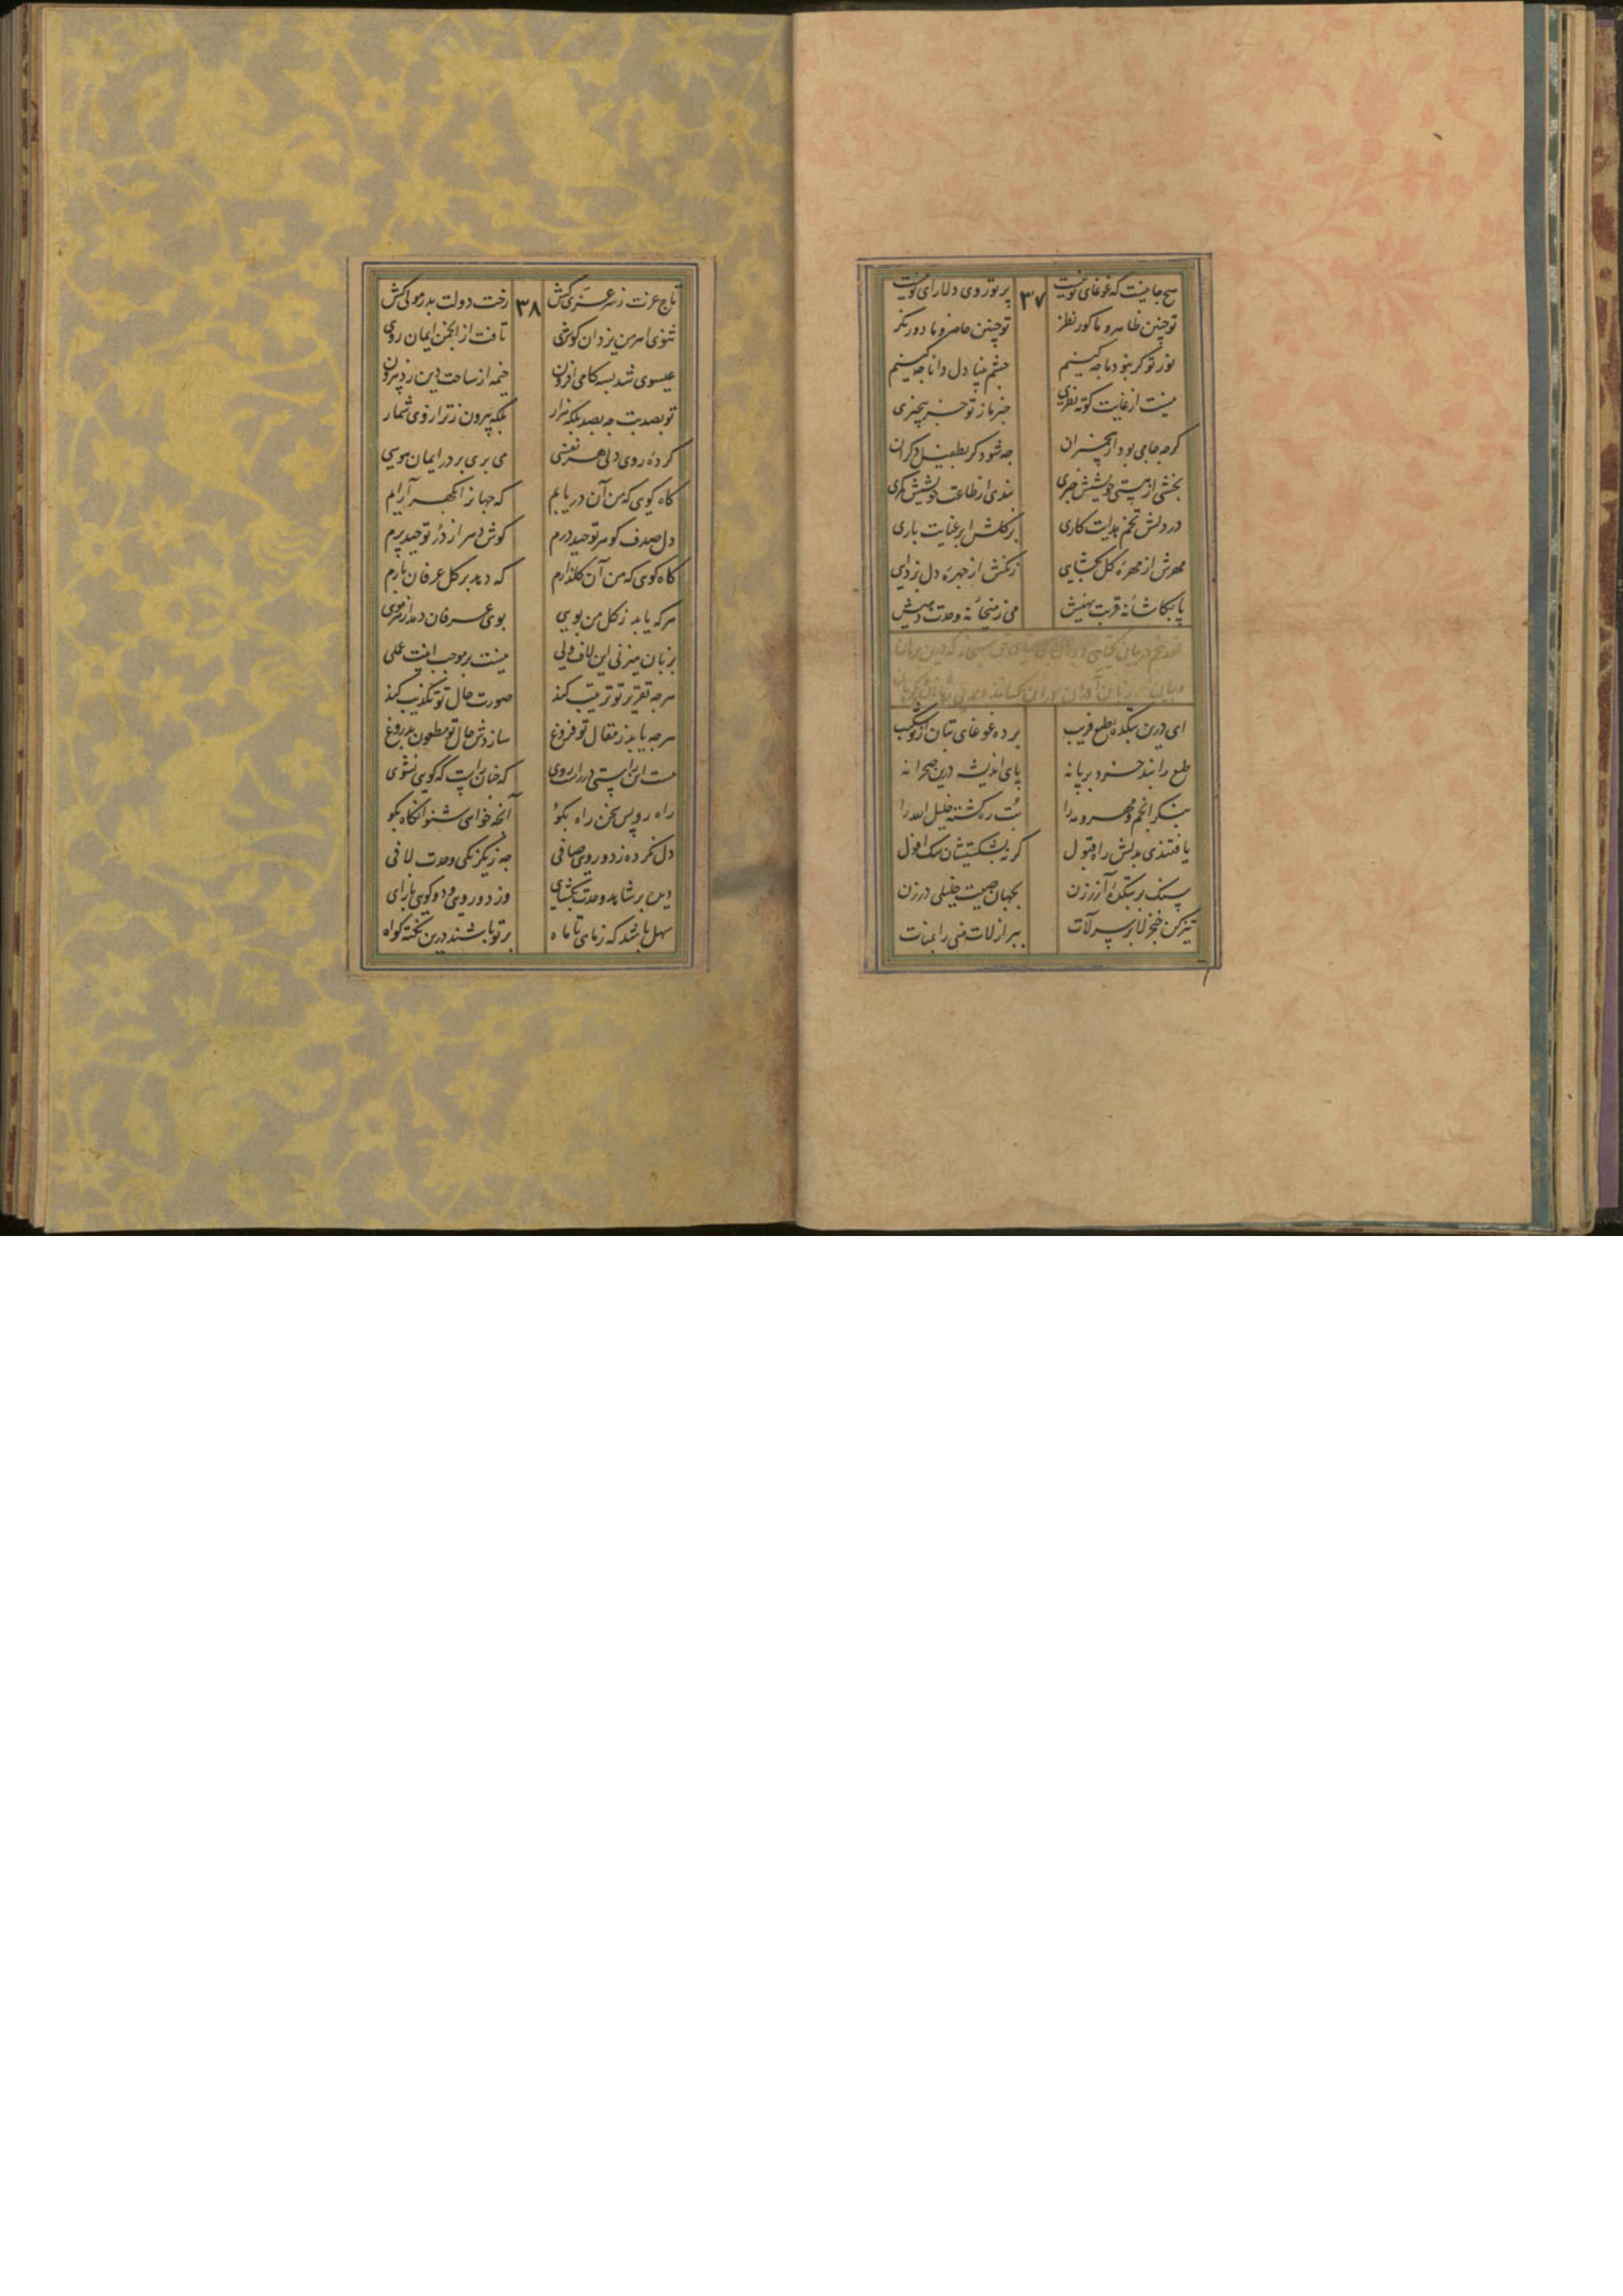 ۳۷
هیچ جا نیست که غوغای تو نیست پرتو روی دلارای تو نیست
تو چنین ظاهر و ما کور نظر تو چنین حاضر و ما دور نگر
نور تو گر نبود ما چه کسیم چشم بینا دل دانا چه کنیم
نیست از غایت کوته نظری خبر ما ز تو جز بیخبری
گرچه جامی بود از بیخبران چه شود گر بطفیل دگران
بخشی از هستی خویشش خبری بندی از طاعت خویشش کمری
در دلش تخم هدایت کاری بر گلش ابر عنایت باری
مهرش از مهره گل بگشایی زنگش از چهره دل بزدایی
پا بکاشانه قربت نهیش می ز میخانه وحدت دهیش
عقد پنجم در بیان یکتایی
ای درین بتکده طبع فریب برده غوغای بتان از تو شکیب
طبع را بند خرد بر پا نه پای اندیشه درین صحرا نه
بنگر انجم و مهر و مه را بت ره گشته خلیل الله را
یافتندی بدلش راه قبول گر نه بشکستیشان سنگ افول
سنگ بر بتکده آزر زن بجهان صیت خلیلی در زن
تیز کن خنجر لا بر سر لات ببر از لات منی را ز منات
۳۸
تاج عزت ز سر عزی کش رخت دولت بدر مولی کش
ثنوی اهرمن یزدان گوی تافت از انجمن ایمان روی
عیسوی شد بسه گامی افزون خیمه از ساحت دین زد بیرون
تو بصد بت چه بصد بلکه هزار بلکه بیرون ز ترازوی شمار
کرده روی دلی هر نفسی می بری بر در ایمان هوسی
گاه گویی که من آن دریایم که جهان را گهر آرایم
دل صدف گوهر توحید درم گوش و سر از در توحید پرم
گاه گویی که من آن گلزارم که دمد بر گل عرفان خارم
هر که یابد ز گل من بویی بوی عرفان دمد از هر مویی
بزبان میزنی این لاف ولی نیست بر موجب اینت عملی
هر چه تقریر تو ترتیب کند صورت حال تو تکذیب کند
هر چه یابد ز مقال تو فروغ سازدش حال تو مطعون بدروغ
هست این راستی در راه روی که چنان راست که گویی نشوی
راه رو پس سخن راه بگو آنچه خواهی شنو آنگاه بگو
دل نکرده ز دو رویی صافی چه ز یکرنگی وحدت لافی
دیده بر شاهد وحدت بگشای وز دو رویی و دو گویی باز آی
سهل باشد که ز ماهی تا ماه بر تو باشند درین نکته گواه